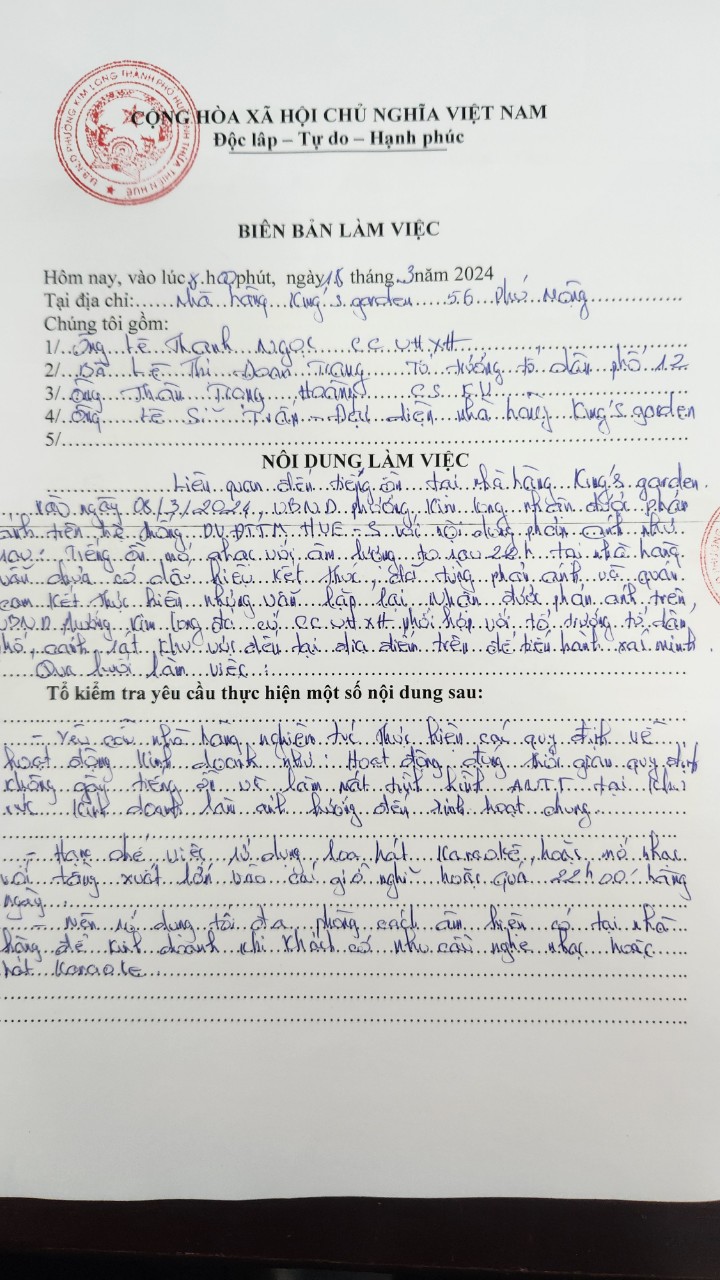 U.B.N.D PHƯỜNG KIM LONG THÀNH PHỐ HUẾ TỈNH THỪA THIÊN HUẾ
CỘNG HÒA XÃ HỘI CHỦ NGHĨA VIỆT NAM
Độc lâp – Tự do – Hạnh phúc
BIÊN BẢN LÀM VIỆC
Hôm nay, vào lúc 8 h 00 phút, ngày 18 tháng 3 năm 2024
Tại địa chỉ: Nhà hàng King's garden 56 Phú Mộng
Chúng tôi gồm:
1/ Ông Lê Thanh Ngọc CC VHXH
2/ Bà Lê Thị Đoan Trang Tổ trưởng tổ dân phố 12
3/ Ông Thân Trọng Hoàng CS KV
4/ Ông Lê Sĩ Trân Đại diện nhà hàng King's garden
5/
NÔI DUNG LÀM VIỆC
Liên quan đến tiếng ồn tại nhà hàng King's garden.
Vào ngày 08/3/2024, UBND phường Kim Long nhận được phản
ánh trên hệ thống DVĐTTM HUE-S với nội dung phản ánh như
sau: Tiếng ồn mở nhạc với âm lượng to sau 22h tại nhà hàng
vẫn chưa có dấu hiệu kết thúc, đã từng phản ánh và quán
cam kết thực hiện nhưng vẫn lặp lại. Nhận được phản ánh trên,
UBND phường Kim Long đã cử CC VHXH phối hợp với tổ trưởng tổ dân
phố, cảnh sát khu vực đến tại địa điểm trên để tiến hành xác minh.
Qua buổi làm việc:
Tổ kiểm tra yêu cầu thực hiện một số nội dung sau:
- Yêu cầu nhà hàng nghiêm túc thực hiện các quy định về
hoạt động kinh doanh như: Hoạt động đúng thời gian quy định
không gây tiếng ồn và làm mất trật tự ANTT tại khu
vực kinh doanh làm ảnh hưởng đến sinh hoạt chung
- Hạn chế việc sử dụng loa hát Karaoke, hoặc mở nhạc
với tầng xuất lớn vào các giờ nghỉ hoặc quá 22h00' hàng
ngày
- Nên sử dụng tối đa phòng cách âm hiện có tại nhà
hàng để kinh doanh khi khách có nhu cầu nghe nhạc hoặc
hát Karaoke